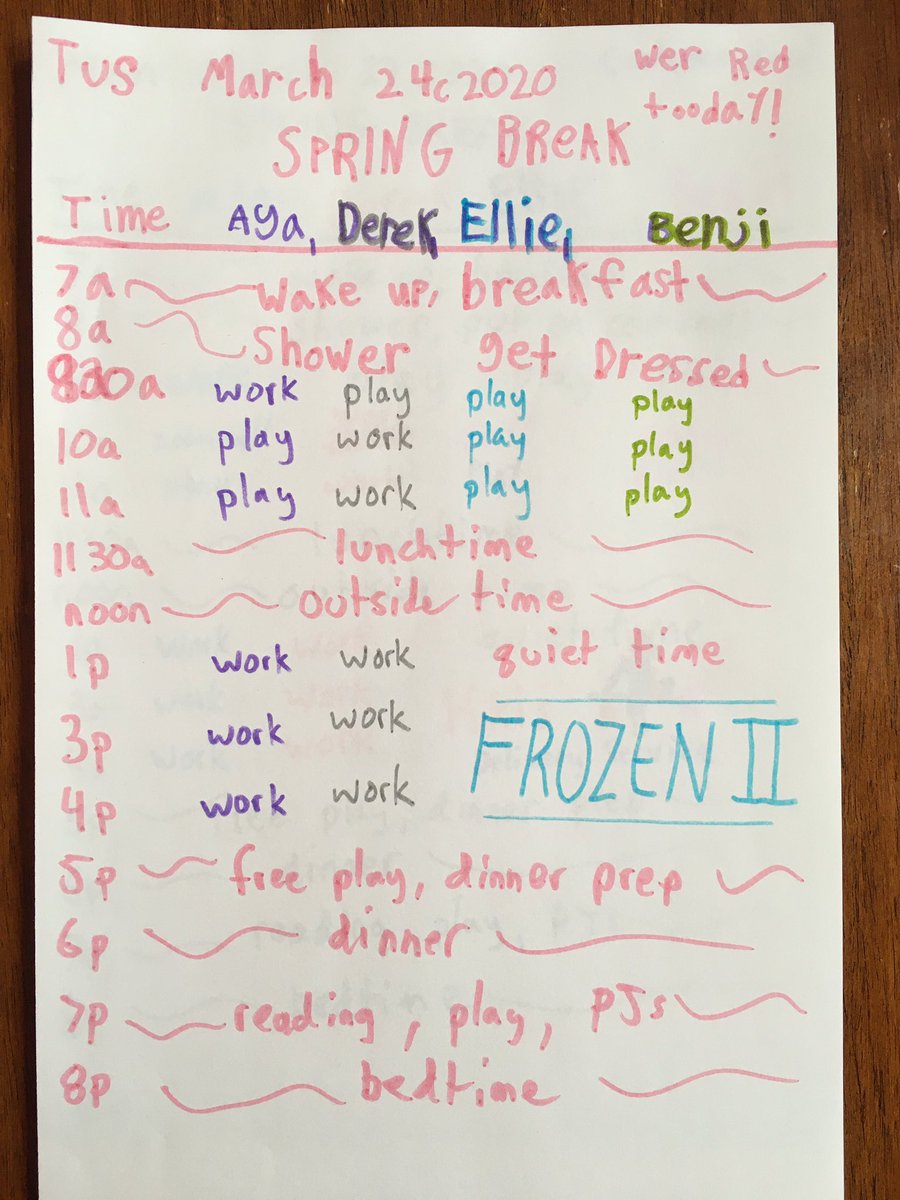 Tus March 24c2020 wer Red
tooday!
SPRING BREAK
Time Aya, Derek, Ellie, Benji
7a wake up, breakfast
8a Shower get Dressed
830a work play play play
10a play work play play
11a play work play play
11 30a lunchtime
noon outside time
1p work work quiet time
3p work work FROZEN II
4p work work
5p free play, dinner prep
6p dinner
7p reading, play, PJs
8p bedtime